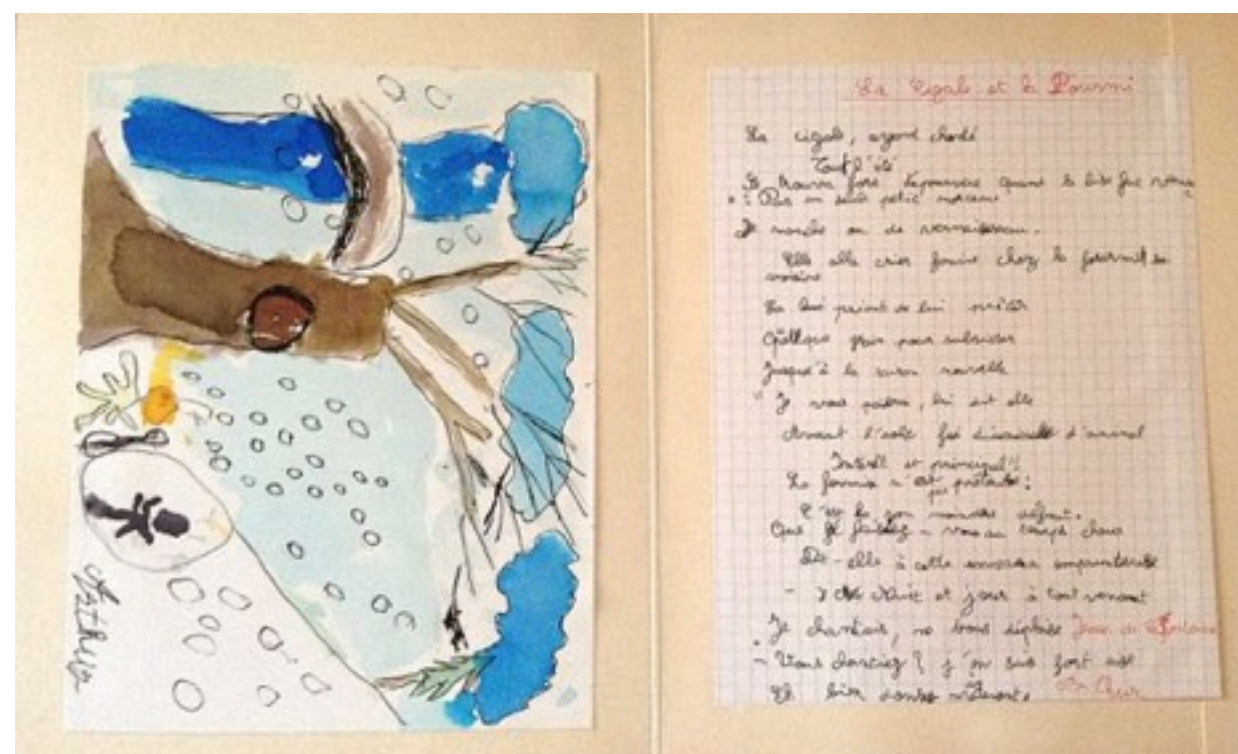 La Cigale et la Fourmi
La cigale, ayant chanté
Tout l'été
Se trouva fort dépourvue quant la bise fut venue
Pas un seul petit morceau
De mouche ou de vermisseau.
Elle alla crier famine chez la fourmi sa
voisine
La priant de lui prêter
Quelque grain pour subsister
Jusqu'à la saison nouvelle
Je vous , lui dit elle
Avant l'août foi d'animal
Intérêt et principal"!
La fourmi n'est pas prêteuse :
C'est là son moindre défaut.
Que faisiez-vous au temps chaud
Dit-elle à cette emprunteuse
- Nuit et jour à tout venant
Je chantais, ne vous déplaise Jean de
- Vous chantiez ? j'en suis fort
Et bien dansez maintenant.